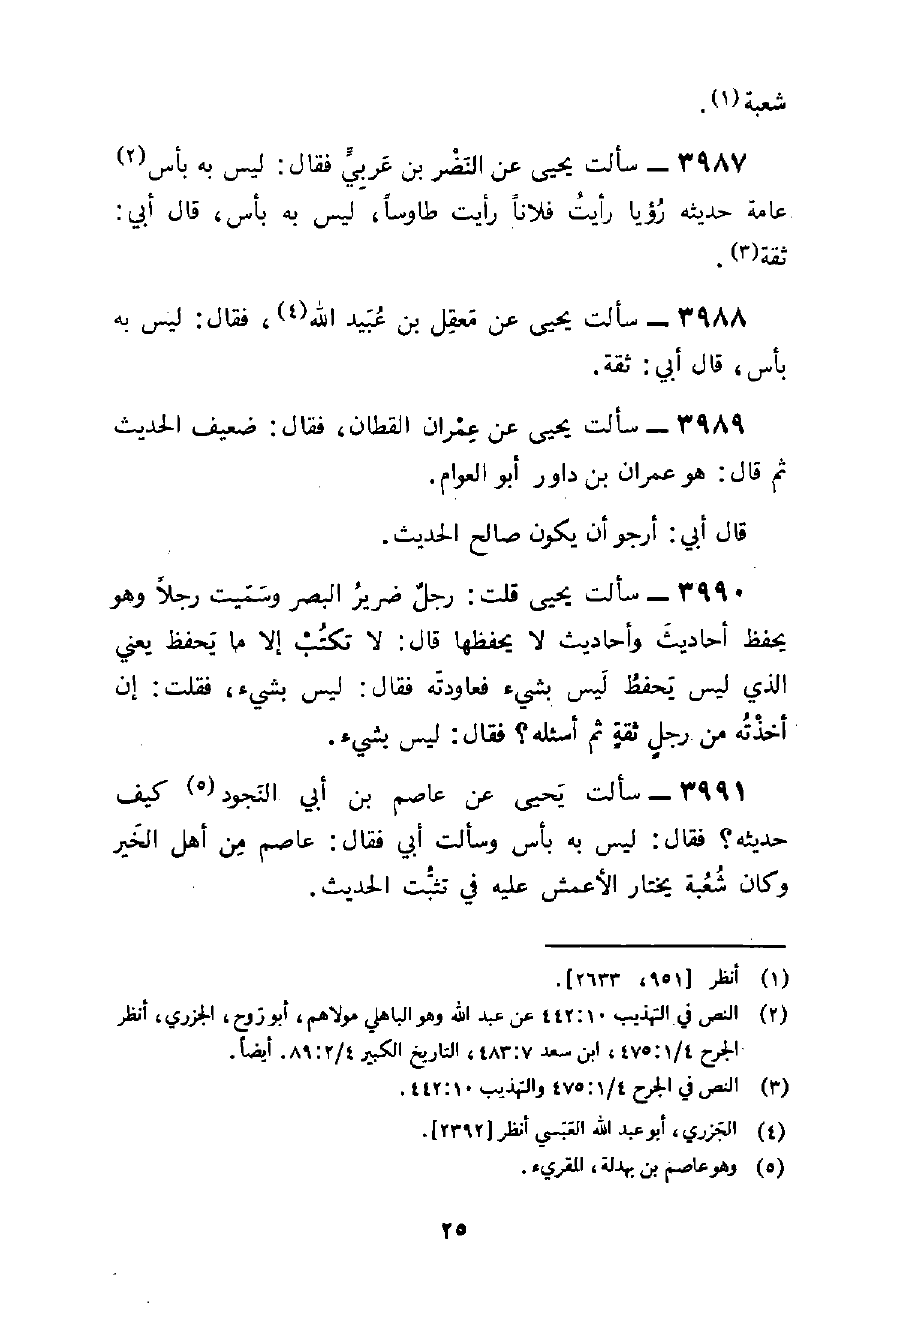 شعبة(١).
٣٩٨٧ — سألت يحيى عن النَضْر بن عَرَبِيٍّ فقال: ليس به بأس(٢)
عامة حديثه رُؤيا رأيتُ فلاناً رأيت طاوساً، ليس به بأس، قال أبي:
ثقة(٣).
٣٩٨٨ — سألت يحيى عن مَعقِل بن عُبَيد الله(٤)، فقال: ليس به
بأس، قال أبي: ثقة.
٣٩٨٩ — سألت يحيى عن عِمْران القطان، فقال: ضعيف الحديث
ثم قال: هو عمران بن داور أبو العوام.
قال أبي: أرجو أن يكون صالح الحديث.
٣٩٩٠ — سألت يحيى قلت: رجلٌ ضريرُ البصر وسَمَّيت رجلاً وهو
يحفظ أحاديثَ وأحاديث لا يحفظها قال: لا تكتُبْ إلا ما يَحفظ يعني
الذي ليس يَحفظُ لَيس بشيء فعاودتَه فقال: ليس بشيء، فقلت: إن
أخذْتُه من رجلٍ ثقةٍ ثم أسئله؟ فقال: ليس بشيء.
٣٩٩١ — سألت يَحيى عن عاصم بن أبي النَجود(٥) كيف
حديثه؟ فقال: ليس به بأس وسألت أبي فقال: عاصم مِن أهل الخَير
وكان شُعْبة يختار الأعمش عليه في تثبُّت الحديث.
(١) أنظر [٩٥١، ٢٦٣٣].
(٢) النص في التهذيب ١٠:٤٤٢ عن عبد الله وهو الباهلي مولاهم، أبو رَوح، الجزري، أنظر
الجرح ٤/١:٤٧٥، ابن سعد ٧:٤٨٣، التاريخ الكبير ٤/٢:٨٩. أيضاً.
(٣) النص في الجرح ٤/١:٤٧٥ والتهذيب ١٠:٤٤٢.
(٤) الجَزري، أبو عبد الله العَبْسي أنظر [٢٣٩٢].
(٥) وهو عاصم بن بهدلة، المقريء.
٢٥